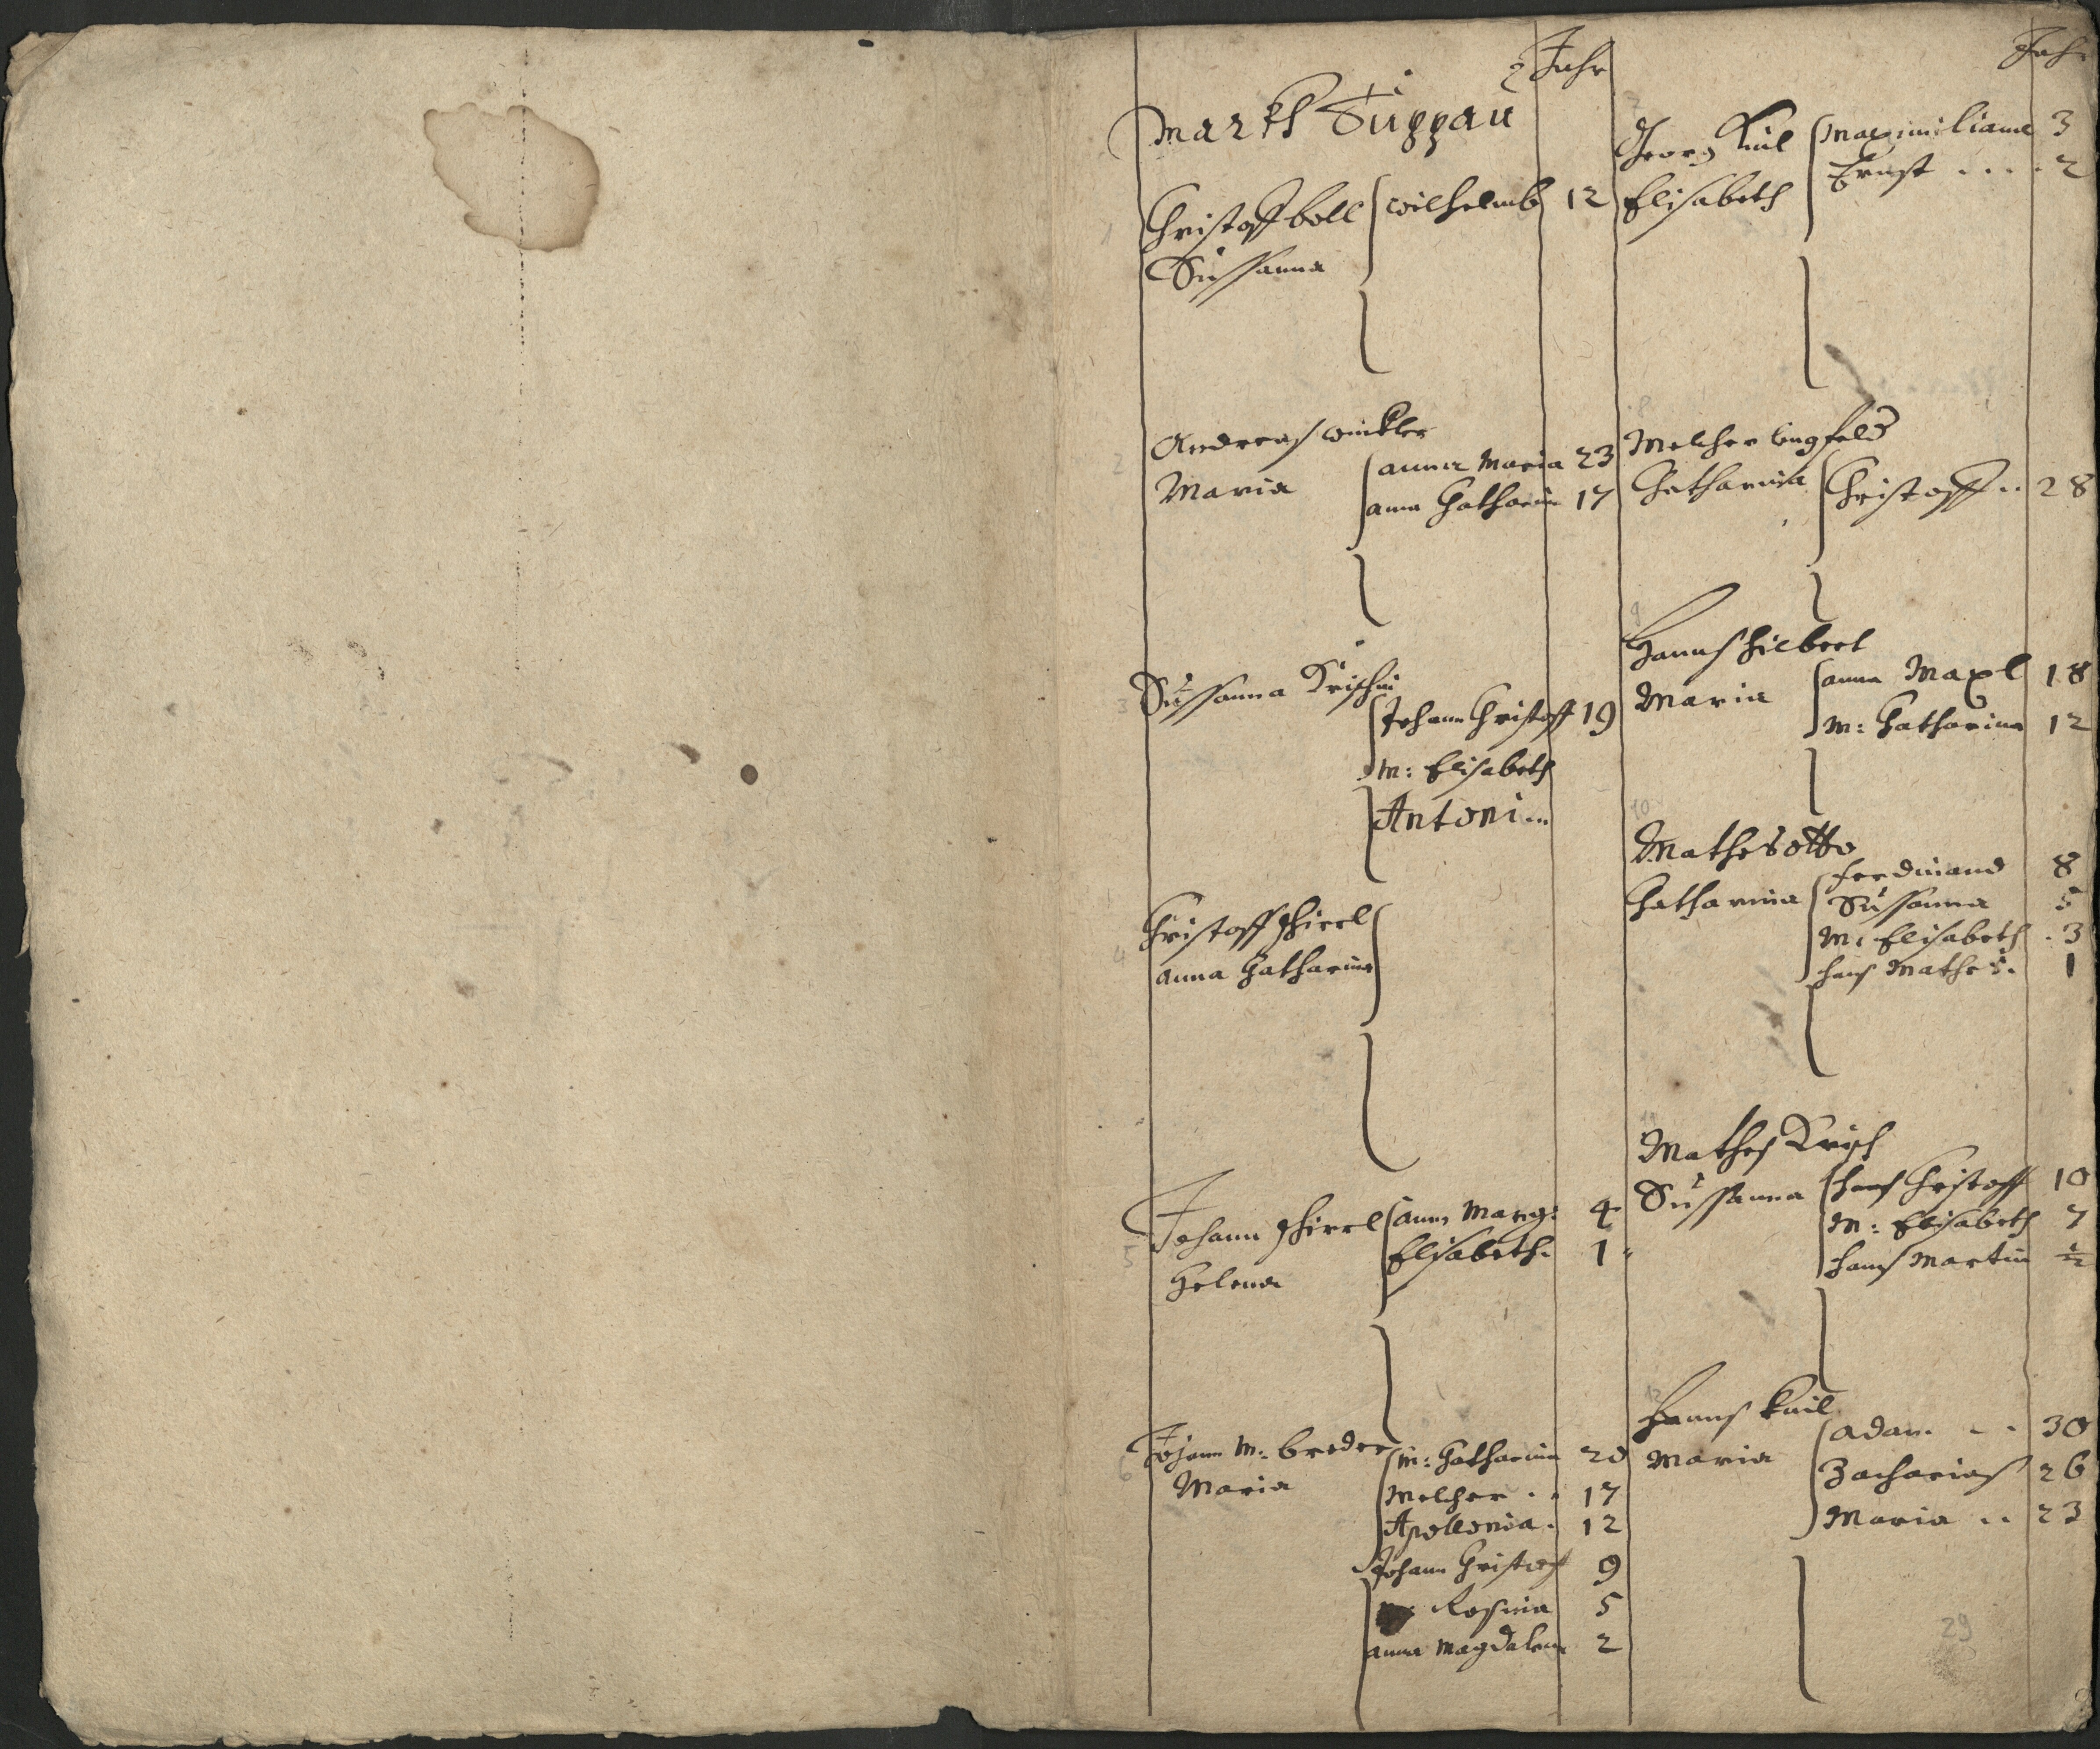 Jahr
Markh Duppau
1
Christoff boll
Wilhelmb 12
Sussanna
2
Andreas Winkler
Maria
anna Maria 23
anna Catharin 17
3
Sussanna Krischin
Johann Christoff 19
M: Elisabeth
Antoni
4
Christoff
anna Catharina
5
Johann
anna Marg: 4
Elisabeth. 1
Helena
6
Johann M: breder
Maria
M: Catharina 20
Melcher .. 17
Apollonia. 12
Johann Christoff 9
Rosina 5
anna Magdalena 2
Jahr
7
Georg Kuil
Maximiliana 3
Elisabeth
Ernst .... 2
8
Melcher lingfeld
Catharina
Christoff .. 28
9
Hanns hilbert
Maria
anna Maxl 18
M: Catharina 12
10
Mathes otto
Catharina
Ferdinand 8
Sussanna 5
M: Elisabeth . 3
hans Mathes. 1
11
Mathes Krisch
Sussanna
hans Christoff 10
M: Elisabeth 7
hans Martin ½
12
Hanns Kuil
Maria
Adam .. 30
Zacharias 26
Maria .. 23
29